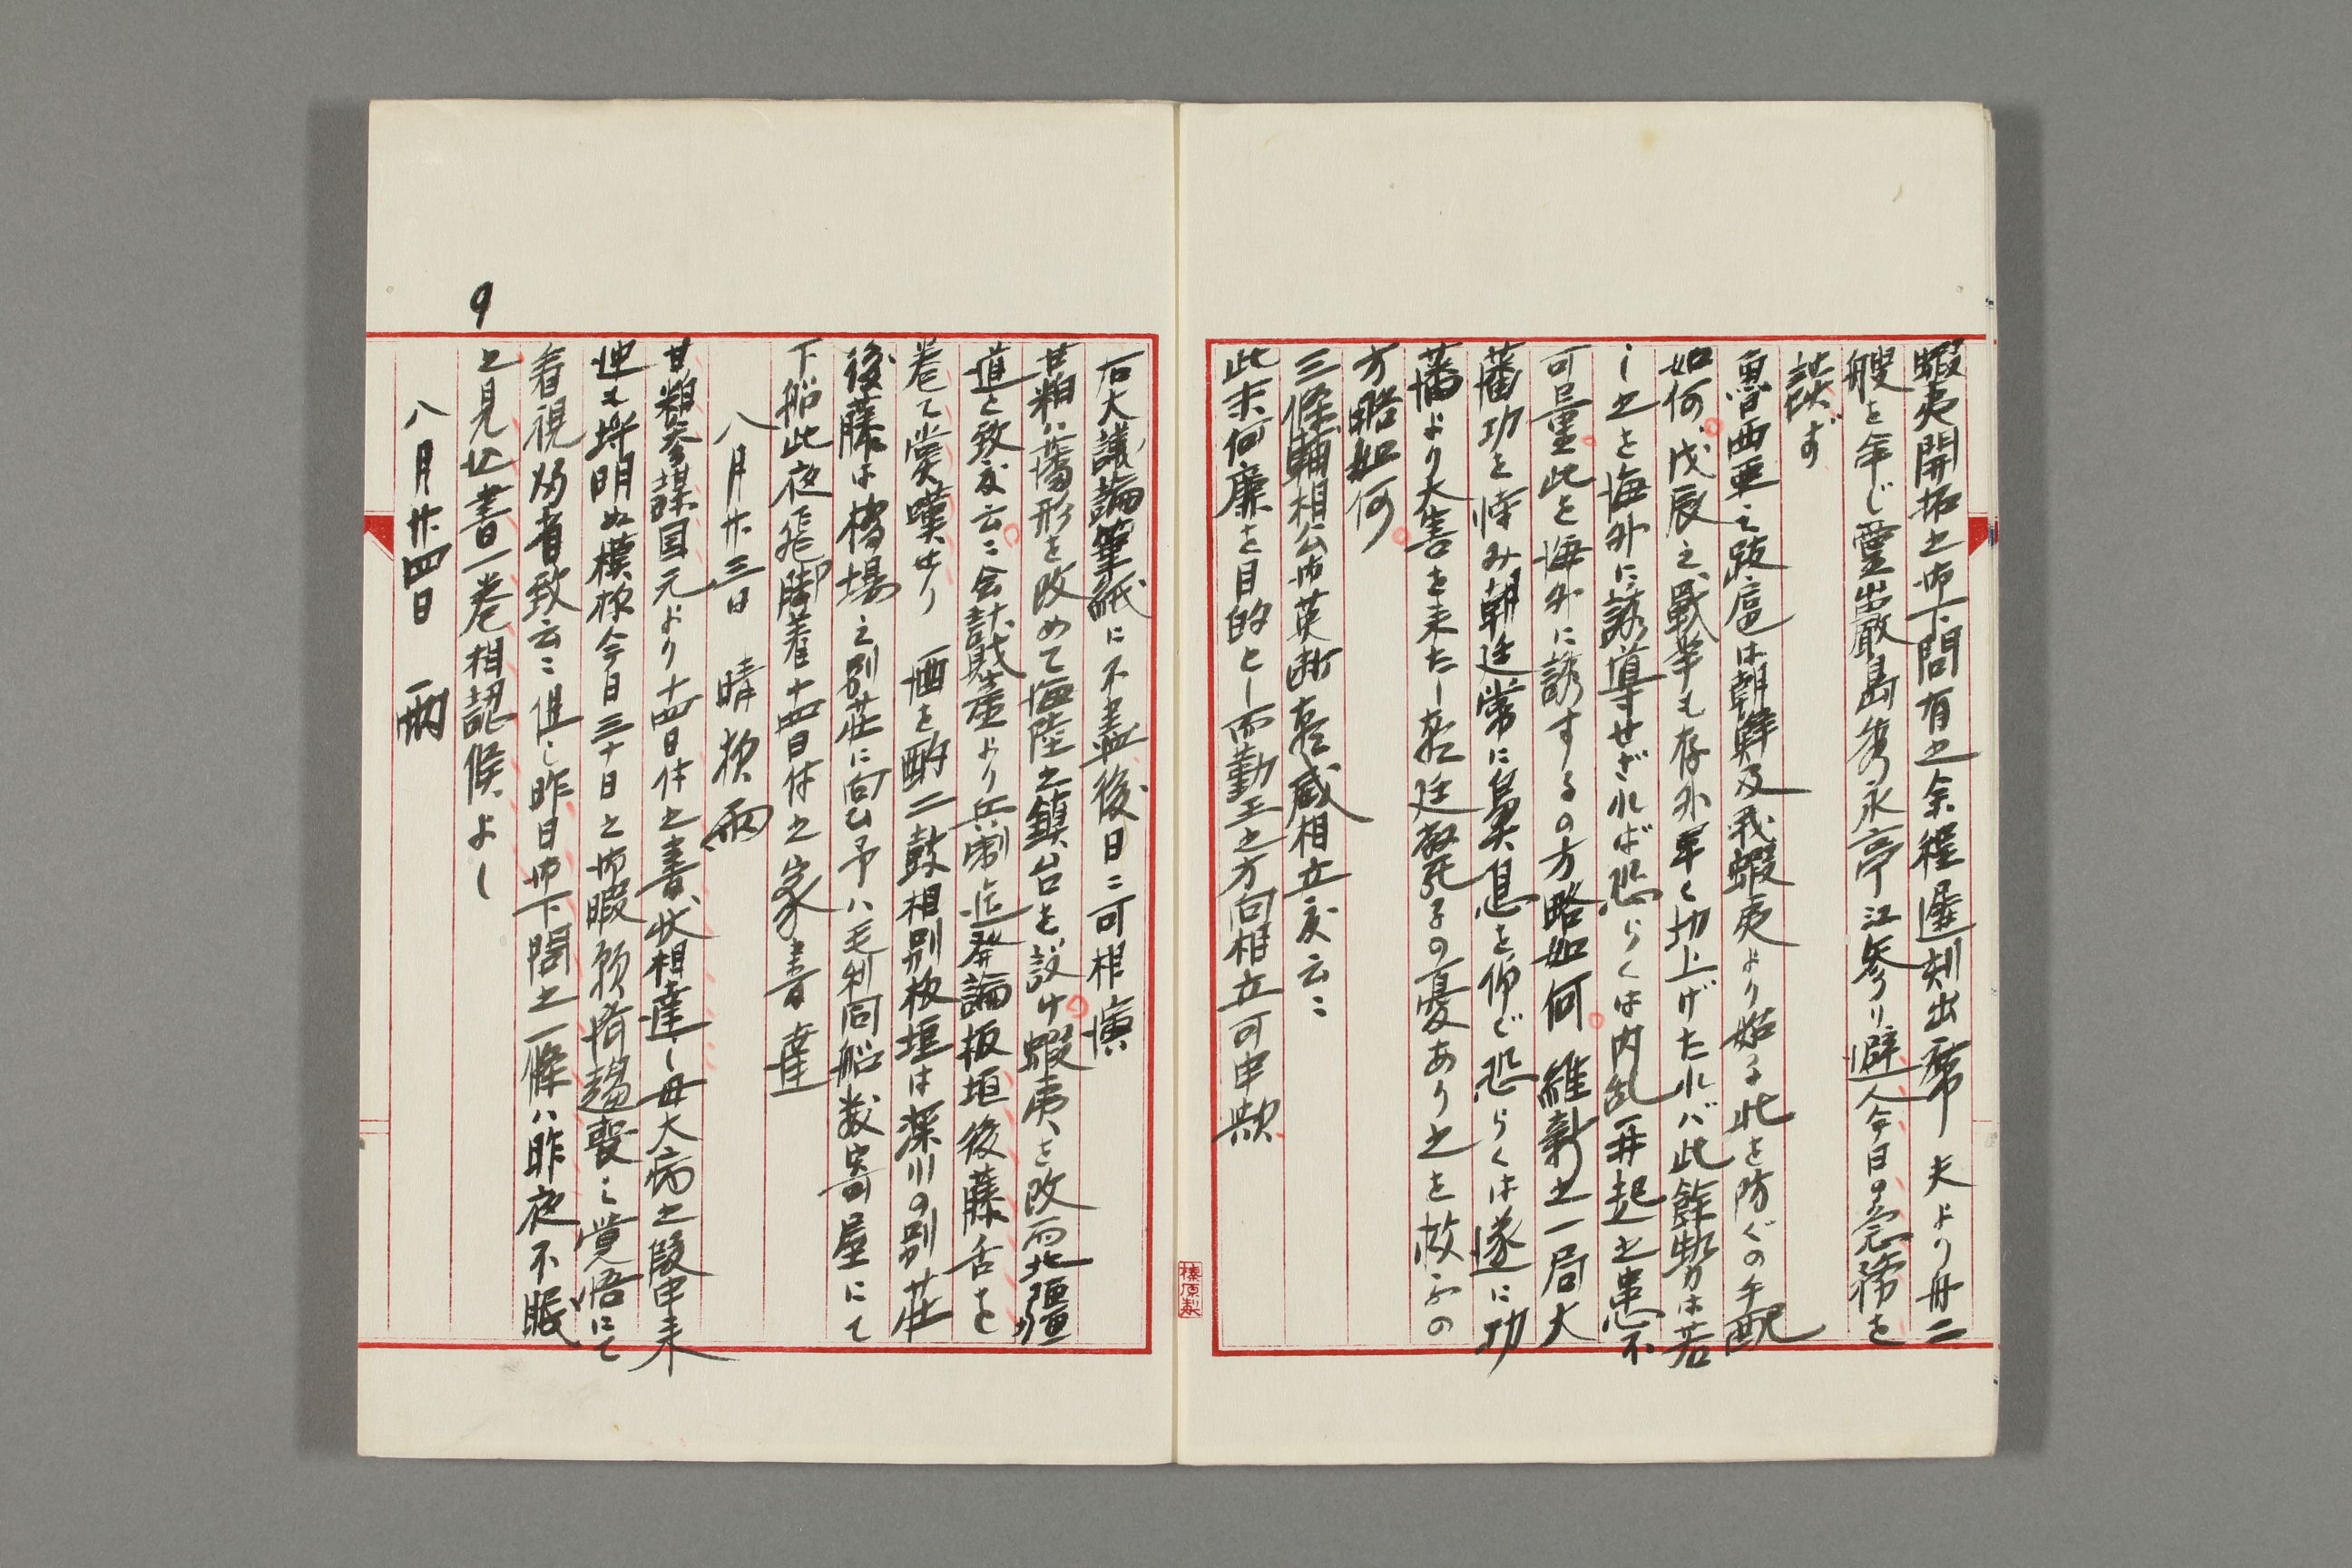 蝦夷開拓之御下問有之余程遅刻出席 夫より舟二
艘を牟じ靈岩嚴島秀永亭江参り避人今日の急務を
談ず
魯西亜之跋扈は朝鮮及我蝦夷より始る此を防ぐの手配
如何戊辰之戰争も存外早く切上げたれバ此餘勢は若
し之を海外に誘導せざれば恐らくは内乱再起之患不
可量此を海外に誘するの方略如何 維新之一局大
藩功を恃み朝廷常に鼻息を仰ぐ恐らくは遂に功
藩より大害を来たし奉廷赦死子の憂あり之を救ふの
方略如何
三條輔相公御英断奉威相立度云々
此末何廉を目的とし而勤王之方向相立可申歟
右大議論筆紙に不盡後日ニ可相演
甘粕ハ藩形を改めて海陸之鎮台を設け蝦夷を改而北疆
道と致度云々会計財産より兵制迄発論板垣後藤舌を
巻て賞嘆せり 酒を酌二鼓相別板垣は深川の別荘
後藤は橋場之別荘に向ひ予ハ毛利同船数寄屋にて
下船此夜飛脚着十四日付之家書達
八月廿三日 晴 夜雨
甘粕参謀国元より十四日付之書状相達し母大病之段申来
迚も埒明ぬ模様今日三十日之御暇願済趨喪之覚悟にて
看視功者致云々但し昨日御下問之一條ハ昨夜不眠
之見込書一巻相認候よし
八月廿四日 雨
9
榛原製